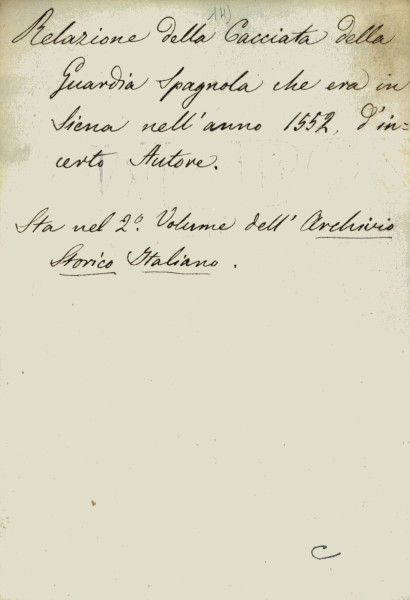 14)
Relazione della Cacciata della
Guardia Spagnola che era in
Siena nell'anno 1552, d'in=
certo Autore.
Sta nel 2º. Volume dell' Archivio
Storico Italiano.
C